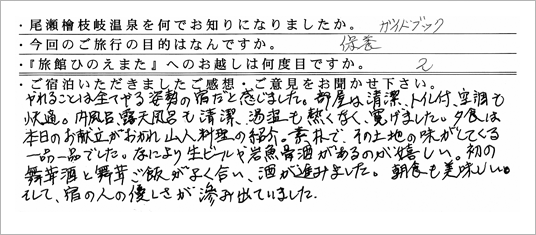 ・尾瀬檜枝岐温泉を何でお知りになりましたか。 ガイドブック
・今回のご旅行の目的はなんですか。 保養
・『旅館ひのえまた』へのお越しは何度目ですか。 2
・ご宿泊いただきましたご感想・ご意見をお聞かせ下さい。
やれることは全てやる姿勢の宿だと感じました。部屋は清潔、トイレ付、空調も
快適。内風呂、露天風呂も清潔、湯温も熱くなく、寛げました。夕食は
本日のお献立がおかれ山人料理の紹介。素朴で、その土地の味がしてくる
一品一品でした。なにより生ビールや岩魚骨酒があるのが嬉しい。初の
舞茸酒と舞茸ご飯がよく合い、酒が進みました。朝食も美味しい。
そして、宿の人の優しさが滲み出ていました。